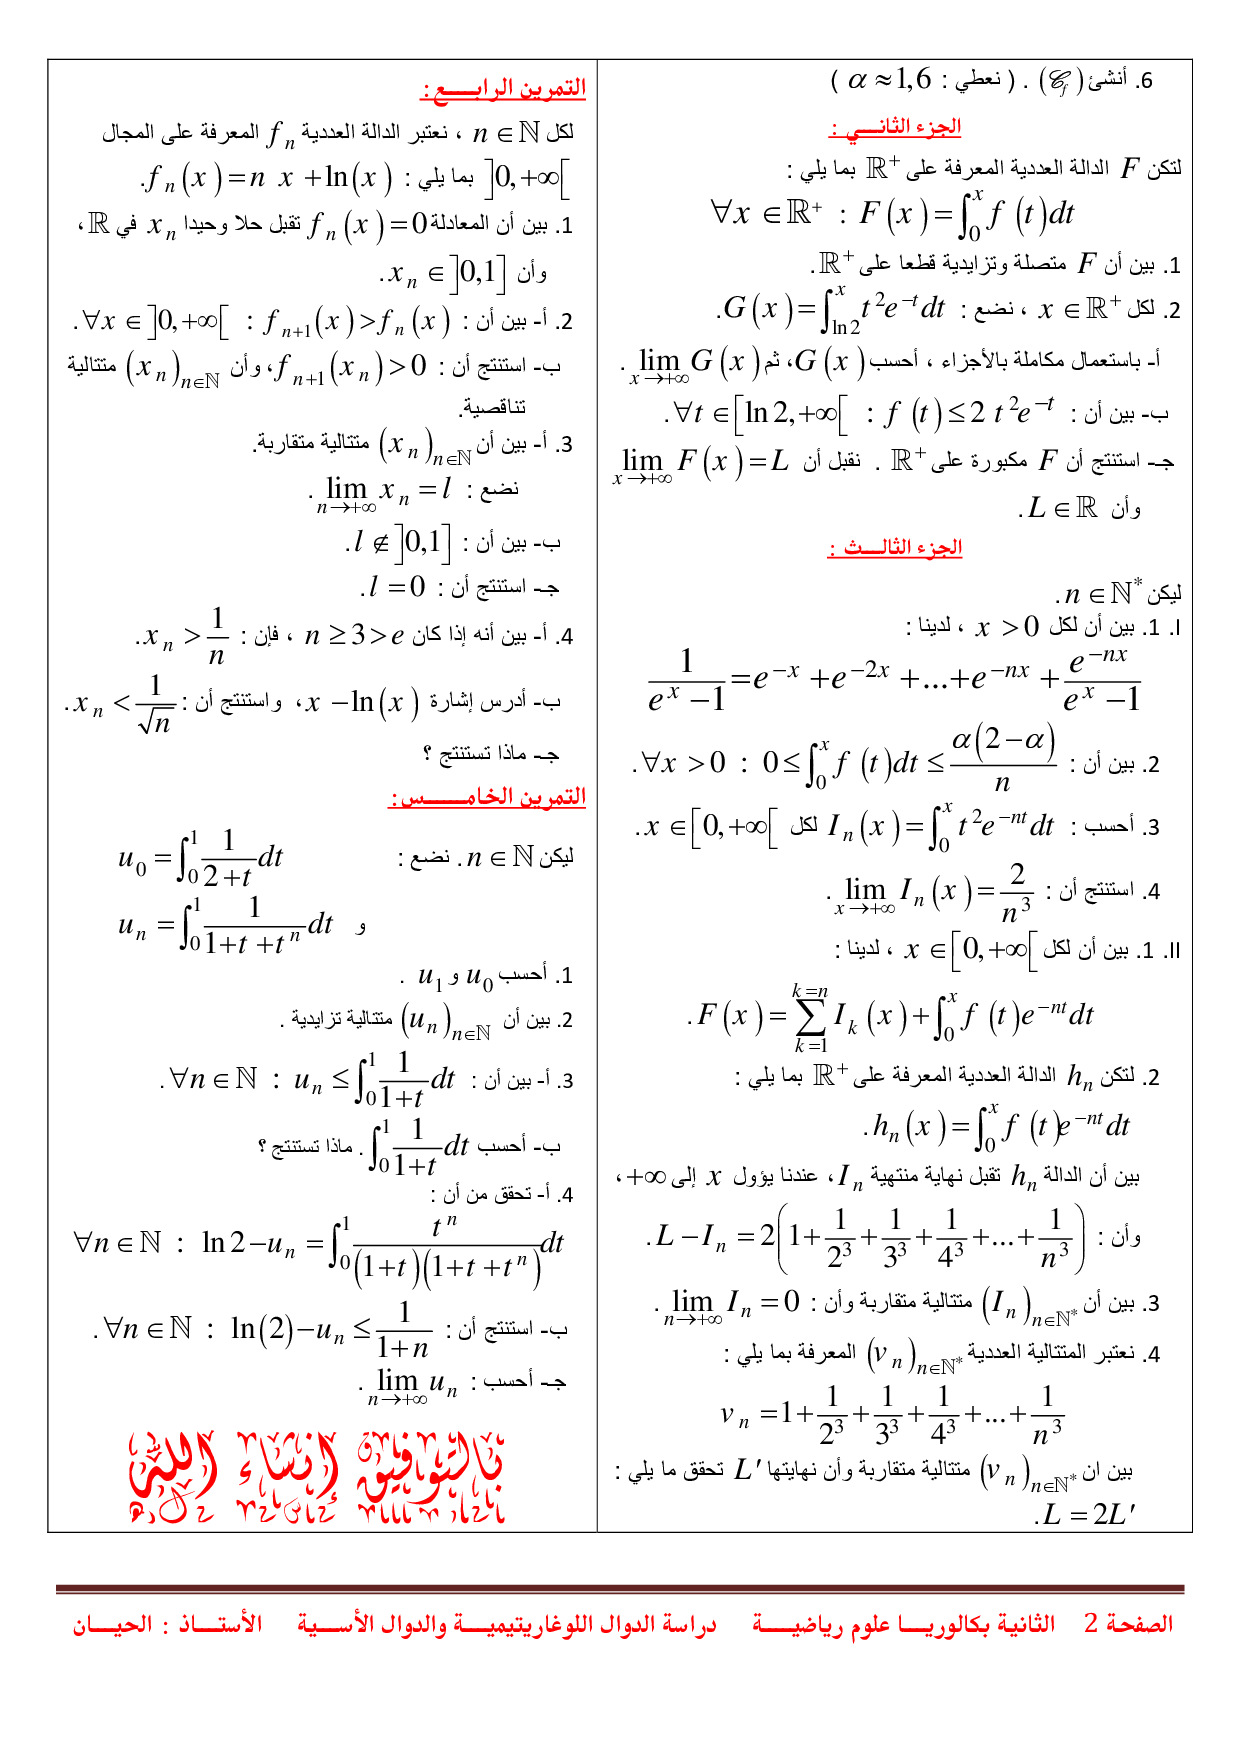 6. أنشئ (𝒞_f) . ( نعطي : α ≈ 1,6 )
الجزء الثاني :
لتكن F الدالة العددية المعرفة على ℝ⁺ بما يلي :
∀x ∈ ℝ⁺ : F(x) = ∫₀ˣ f(t)dt
1. بين أن F متصلة وتزايدية قطعا على ℝ⁺.
2. لكل x ∈ ℝ⁺ ، نضع : G(x) = ∫_{ln2}^{x} t²e^{-t}dt.
أ- باستعمال مكاملة بالأجزاء ، أحسب G(x)، ثم lim_{x→+∞} G(x) .
ب- بين أن : ∀t ∈ [ln2,+∞[ : f(t) ≤ 2 t²e^{-t}.
جـ- استنتج أن F مكبورة على ℝ⁺ . نقبل أن lim_{x→+∞} F(x) = L
وأن L ∈ ℝ .
الجزء الثالث :
ليكن n ∈ ℕ* .
I. 1. بين أن لكل x > 0 ، لدينا :
1/(e^x −1) = e^{-x} + e^{-2x} + ... + e^{-nx} + e^{-nx}/(e^x −1)
2. بين أن : ∀x > 0 : 0 ≤ ∫₀ˣ f(t)dt ≤ α(2−α)/n .
3. أحسب : I_n(x) = ∫₀ˣ t²e^{-nt}dt لكل x ∈ [0,+∞[ .
4. استنتج أن : lim_{x→+∞} I_n(x) = 2/n³ .
II. 1. بين أن لكل x ∈ [0,+∞[ ، لدينا :
F(x) = ∑_{k=1}^{k=n} I_k(x) + ∫₀ˣ f(t)e^{-nt}dt .
2. لتكن h_n الدالة العددية المعرفة على ℝ⁺ بما يلي :
h_n(x) = ∫₀ˣ f(t)e^{-nt}dt .
بين أن الدالة h_n تقبل نهاية منتهية I_n، عندنا يؤول x إلى +∞ ،
وأن : L − I_n = 2(1 + 1/2³ + 1/3³ + 1/4³ + ... + 1/n³) .
3. بين أن (I_n)_{n∈ℕ*} متتالية متقاربة وأن : lim_{n→+∞} I_n = 0 .
4. نعتبر المتتالية العددية (v_n)_{n∈ℕ*} المعرفة بما يلي :
v_n = 1 + 1/2³ + 1/3³ + 1/4³ + ... + 1/n³
بين ان (v_n)_{n∈ℕ*} متتالية متقاربة وأن نهايتها L′ تحقق ما يلي :
L = 2L′ .
التمرين الرابع :
لكل n ∈ ℕ ، نعتبر الدالة العددية f_n المعرفة على المجال
]0,+∞[ بما يلي : f_n(x) = n x + ln(x) .
1. بين أن المعادلة f_n(x) = 0 تقبل حلا وحيدا x_n في ℝ ،
وأن x_n ∈ ]0,1] .
2. أ- بين أن : ∀x ∈ ]0,+∞[ : f_{n+1}(x) > f_n(x) .
ب- استنتج أن : f_{n+1}(x_n) > 0 ، وأن (x_n)_{n∈ℕ} متتالية
تناقصية.
3. أ- بين أن (x_n)_{n∈ℕ} متتالية متقاربة.
نضع : lim_{n→+∞} x_n = l .
ب- بين أن : l ∉ ]0,1] .
جـ- استنتج أن : l = 0 .
4. أ- بين أنه إذا كان n ≥ 3 > e ، فإن : x_n > 1/n .
ب- أدرس إشارة x − ln(x) ، واستنتج أن : x_n < 1/√n .
جـ- ماذا تستنتج ؟
التمرين الخامس :
ليكن n ∈ ℕ . نضع : u₀ = ∫₀¹ 1/(2+t) dt
و u_n = ∫₀¹ 1/(1+t+tⁿ) dt
1. أحسب u₀ و u₁ .
2. بين أن (u_n)_{n∈ℕ} متتالية تزايدية .
3. أ- بين أن : ∀n ∈ ℕ : u_n ≤ ∫₀¹ 1/(1+t) dt .
ب- أحسب ∫₀¹ 1/(1+t) dt . ماذا تستنتج ؟
4. أ- تحقق من أن :
∀n ∈ ℕ : ln2 − u_n = ∫₀¹ tⁿ/((1+t)(1+t+tⁿ)) dt
ب- استنتج أن : ∀n ∈ ℕ : ln(2) − u_n ≤ 1/(1+n) .
جـ- أحسب : lim_{n→+∞} u_n .
بالتوفيق إنشاء الله
الصفحة 2 الثانية بكالوريا علوم رياضية دراسة الدوال اللوغاريتيمية والدوال الأسية الأستاذ : الحيان